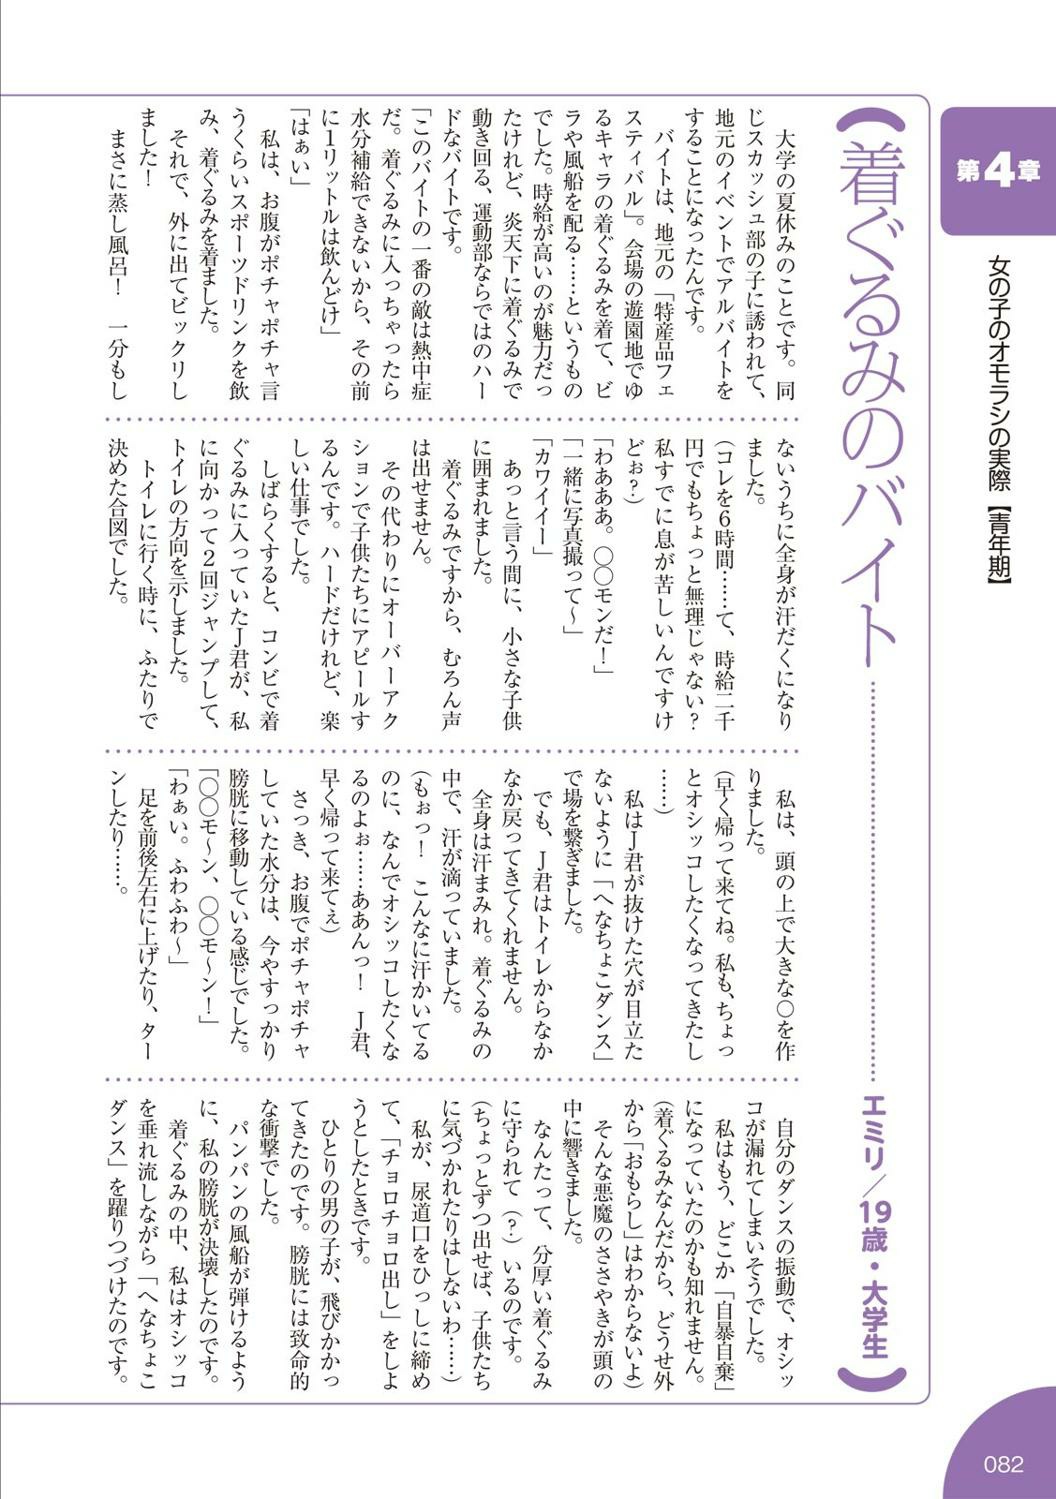 第4章
女の子のオモラシの実際【青年期】
着ぐるみのバイト
エミリ／19歳・大学生
大学の夏休みのことです。同
じスカッシュ部の子に誘われて、
地元のイベントでアルバイトを
することになったんです。
バイトは、地元の「特産品フェ
スティバル」。会場の遊園地でゆ
るキャラの着ぐるみを着て、ビ
ラや風船を配る……というもの
でした。時給が高いのが魅力だっ
たけれど、炎天下に着ぐるみで
動き回る、運動部ならではのハー
ドなバイトです。
「このバイトの一番の敵は熱中症
だ。着ぐるみに入っちゃったら
水分補給できないから、その前
に1リットルは飲んどけ」
「はぁい」
私は、お腹がポチャポチャ言
うくらいスポーツドリンクを飲
み、着ぐるみを着ました。
それで、外に出てビックリし
ました！
まさに蒸し風呂！　一分もし
ないうちに全身が汗だくになり
ました。
（コレを6時間……て、時給二千
円でもちょっと無理じゃない？
私すでに息が苦しいんですけ
どぉ？）
「わあああ。〇〇モンだ！」
「一緒に写真撮って～」
「カワイイー」
あっと言う間に、小さな子供
に囲まれました。
着ぐるみですから、むろん声
は出せません。
その代わりにオーバーアク
ションで子供たちにアピールす
るんです。ハードだけれど、楽
しい仕事でした。
しばらくすると、コンビで着
ぐるみに入っていたJ君が、私
に向かって2回ジャンプして、
トイレの方向を示しました。
トイレに行く時に、ふたりで
決めた合図でした。
私は、頭の上で大きな〇を作
りました。
（早く帰って来てね。私も、ちょっ
とオシッコしたくなってきたし
……）
私はJ君が抜けた穴が目立た
ないように「へなちょこダンス」
で場を繋ぎました。
でも、J君はトイレからなか
なか戻ってきてくれません。
全身は汗まみれ。着ぐるみの
中で、汗が滴っていました。
（もぉっ！　こんなに汗かいてる
のに、なんでオシッコしたくな
るのよぉ……ああんっ！　J君、
早く帰って来てぇ）
さっき、お腹でポチャポチャ
していた水分は、今やすっかり
膀胱に移動している感じでした。
「〇〇モ～ン、〇〇モ～ン！」
「わぁい。ふわふわ～」
足を前後左右に上げたり、ター
ンしたり……。
自分のダンスの振動で、オシッ
コが漏れてしまいそうでした。
私はもう、どこか「自暴自棄」
になっていたのかも知れません。
（着ぐるみなんだから、どうせ外
から「おもらし」はわからないよ）
そんな悪魔のささやきが頭の
中に響きました。
なんたって、分厚い着ぐるみ
に守られて（？）いるのです。
（ちょっとずつ出せば、子供たち
に気づかれたりはしないわ……）
私が、尿道口をひっしに締め
て、「チョロチョロ出し」をしよ
うとしたときです。
ひとりの男の子が、飛びかかっ
てきたのです。膀胱には致命的
な衝撃でした。
パンパンの風船が弾けるよう
に、私の膀胱が決壊したのです。
着ぐるみの中、私はオシッコ
を垂れ流しながら「へなちょこ
ダンス」を躍りつづけたのです。
082